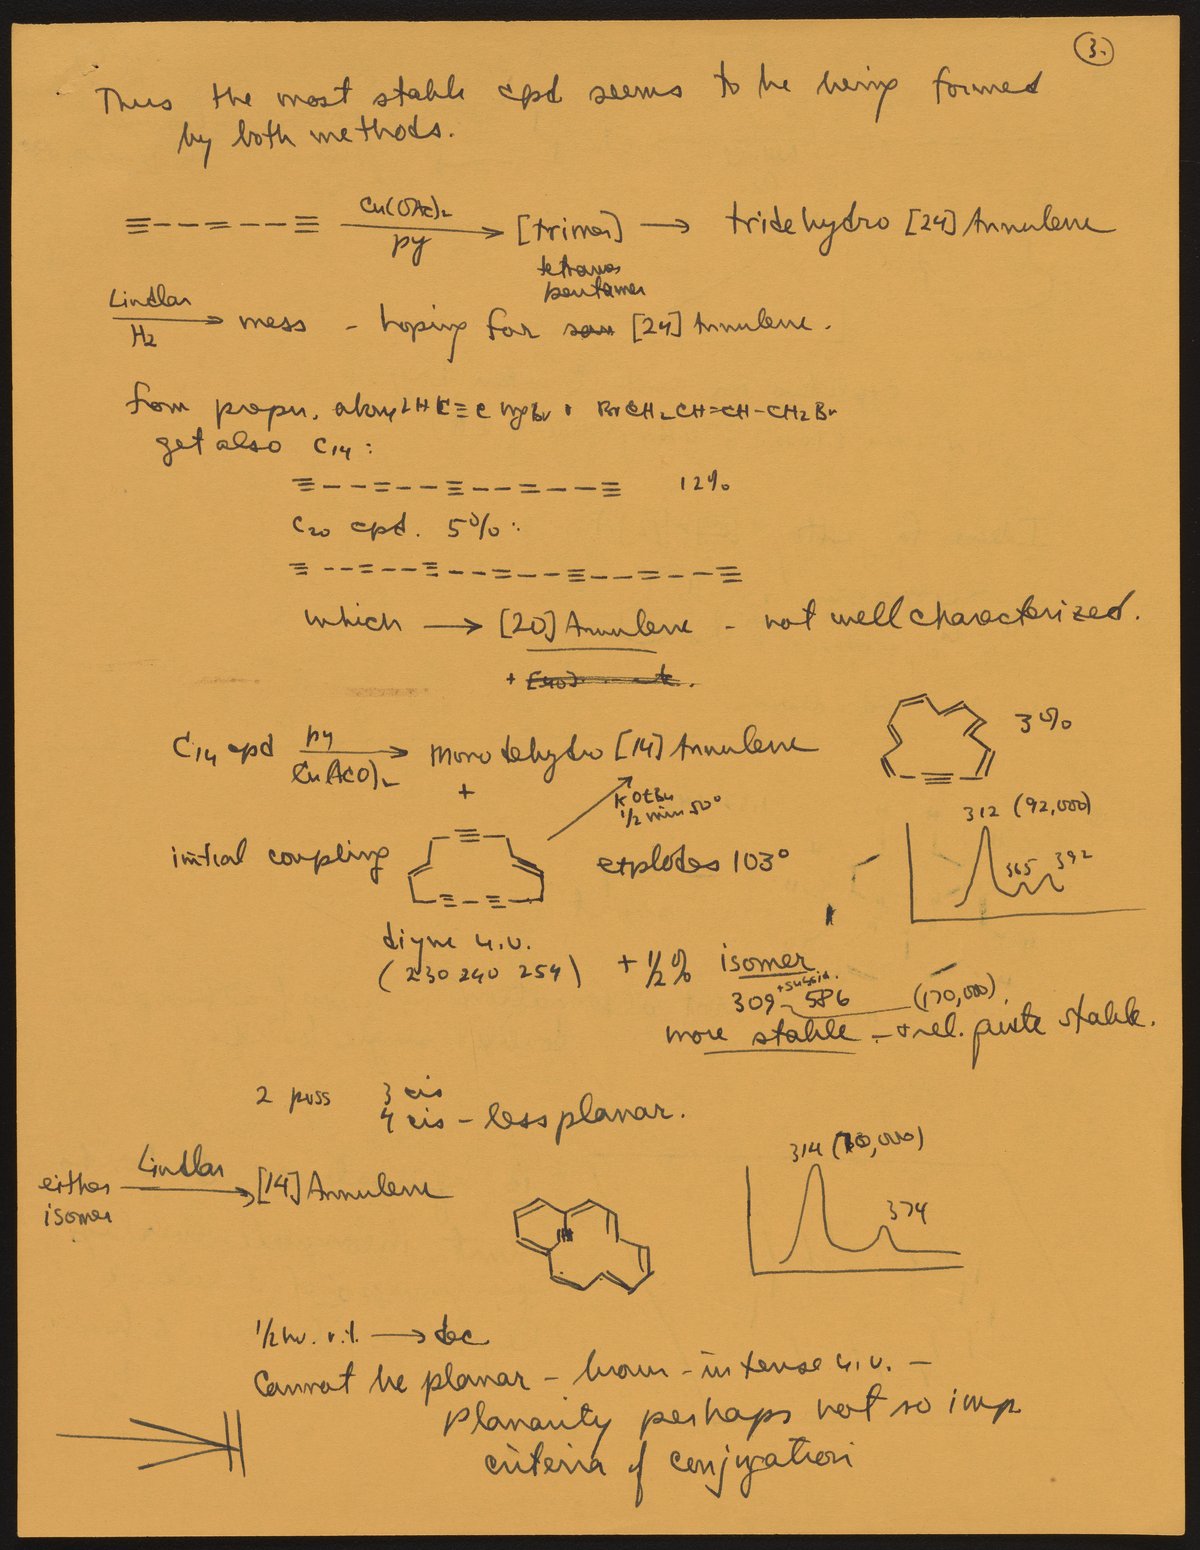 3.
Thus the most stable cpd seems to be being formed
by both methods.
≡ - - = - - ≡ Cu(OAc)₂ py → [trimer] → tridehydro [24] Annulene
tetramer
pentamer
Lindlar H₂ → mess - hoping for [24] Annulene.
from prepn. HC≡C MgBr + BrCH₂CH=CH-CH₂Br
get also C₁₄:
≡ - - = - - ≡ - - = - - ≡ 12%
C₂₀ cpd. 5%:
≡ - - = - - ≡ - - = - - ≡ - - = - - ≡
which → [20] Annulene - not well characterized.
+
C₁₄ cpd py Cu(AcO)₂ → monodehydro [14] Annulene 3%
+
KOtBu
½ min 50°
312 (92,000)
365 392
initial coupling explodes 103°
diyne u.v.
(230 240 254) + ½% isomer
309 586 (170,000)
more stable - + rel. quite stable.
2 poss 3 cis
4 cis - less planar.
either isomer Lindlar → [14] Annulene
314 374
½ hr. r.t. → dec
Cannot be planar - brown - intense u.v. -
planarity perhaps not so imp
criteria of conjugation